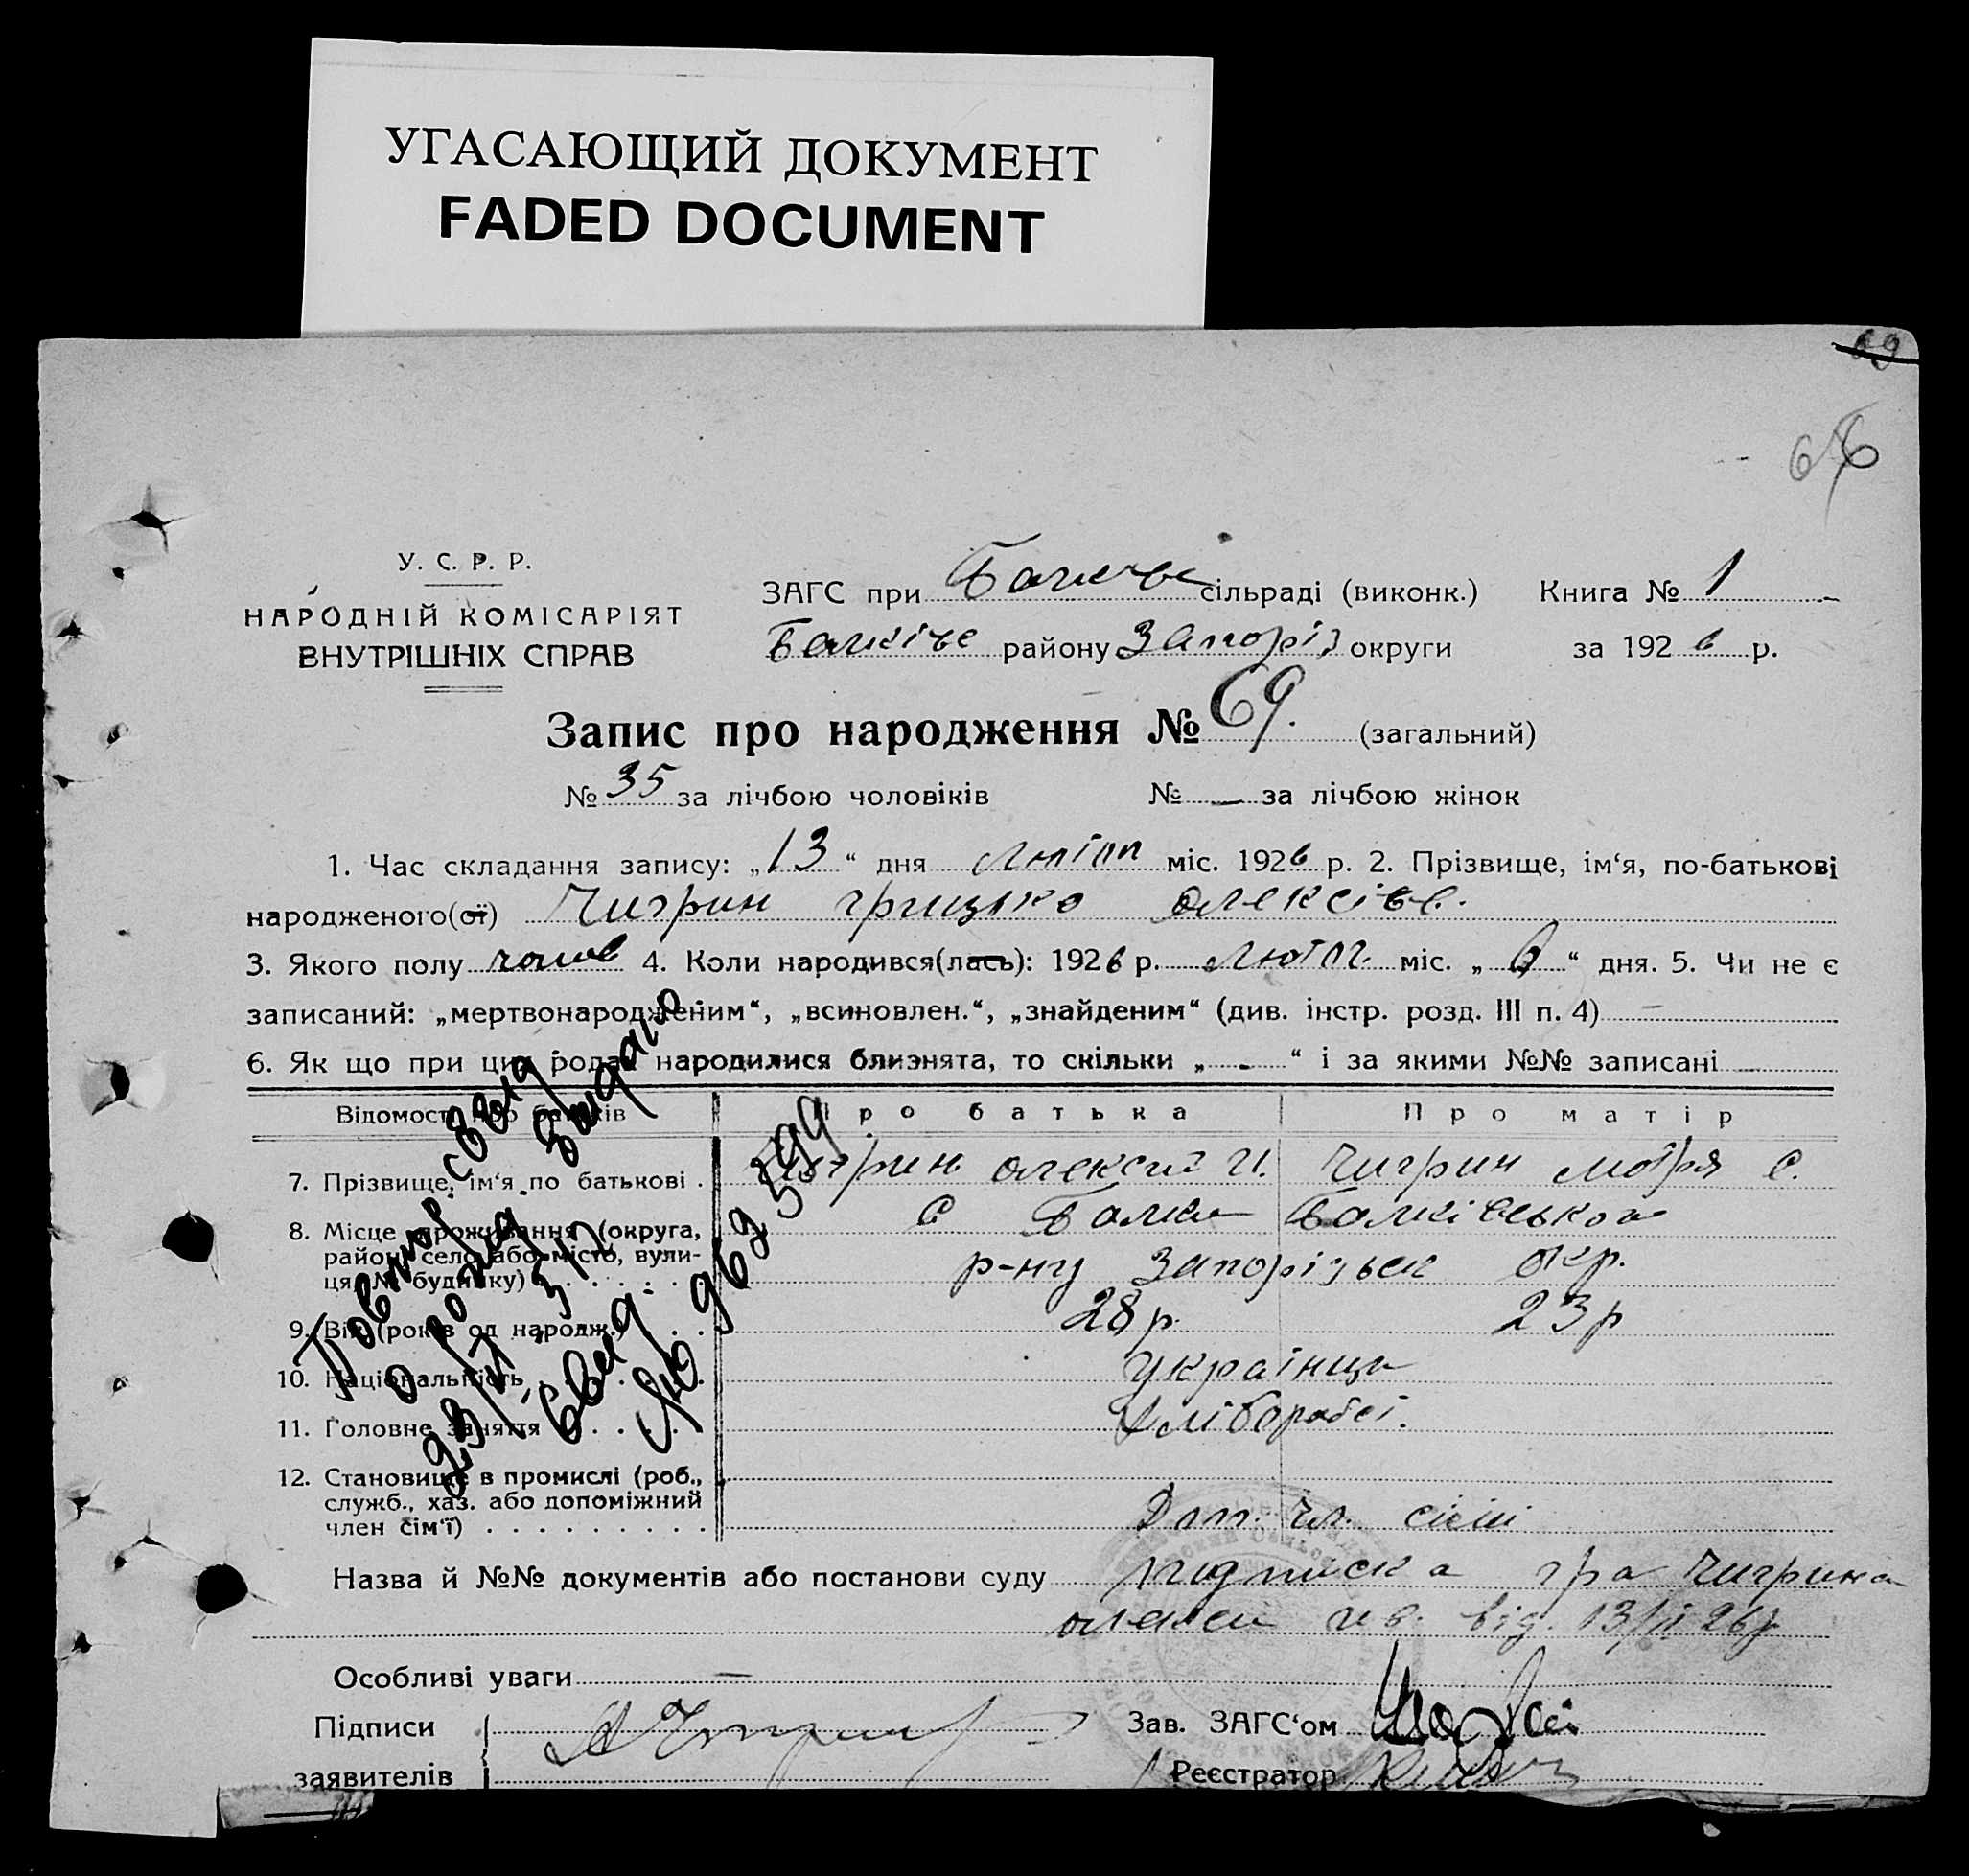 УГАСАЮЩИЙ ДОКУМЕНТ
FADED DOCUMENT
69
66
У. С. Р. Р.
НАРОДНІЙ КОМІСАРІЯТ
ВНУТРІШНІХ СПРАВ
ЗАГС при сільраді (виконк.) Книга № 1
району Запоріз округи за 1926 р.
Запис про народження № 69. (загальний)
№ 35 за лічбою чоловіків № — за лічбою жінок
1. Час складання запису: „13“ дня міс. 1926 р. 2. Прізвище, ім‘я, по-батькові
народженого(ої) Чигрин Грицько Олексієв.
3. Якого полу чолов 4. Коли народився(лась): 1926 р. Лютог. міс. „ “ дня. 5. Чи не є
записаний: „мертвонародженим“, „всиновлен.“, „знайденим“ (див. інстр. розд. III п. 4) —
6. Як що при цих родах народилися близнята, то скільки „ - “ і за якими №№ записані —
Відомості про батьків Про батька Про матір
7. Прізвище, ім‘я по батькові . Чигрин Олексій И. Чигрин Мотря С.
8. Місце проживання (округа, с Балки Балківського
район, село або місто, вули- р-ну Запорізьк окр.
ця, № будинку)
9. Вік (років од народж.) . . 28 р. 23 р
10. Національність . українци
11. Головне заняття . . . . Хлібороби.
12. Становище в промислі (роб.,
служб., хаз. або допоміжний
член сім‘ї) . . . . . . . . . Доп. чл. сімі
Назва й №№ документів або постанови суду підписка гр. Чигрина
Олексі Ив. від. 13/II 26р
Особливі уваги —
Підписи Зав. ЗАГС‘ом
заявителів Реєстратор
Повторн. свид
о рожд. выдано
свид.
№ 969399